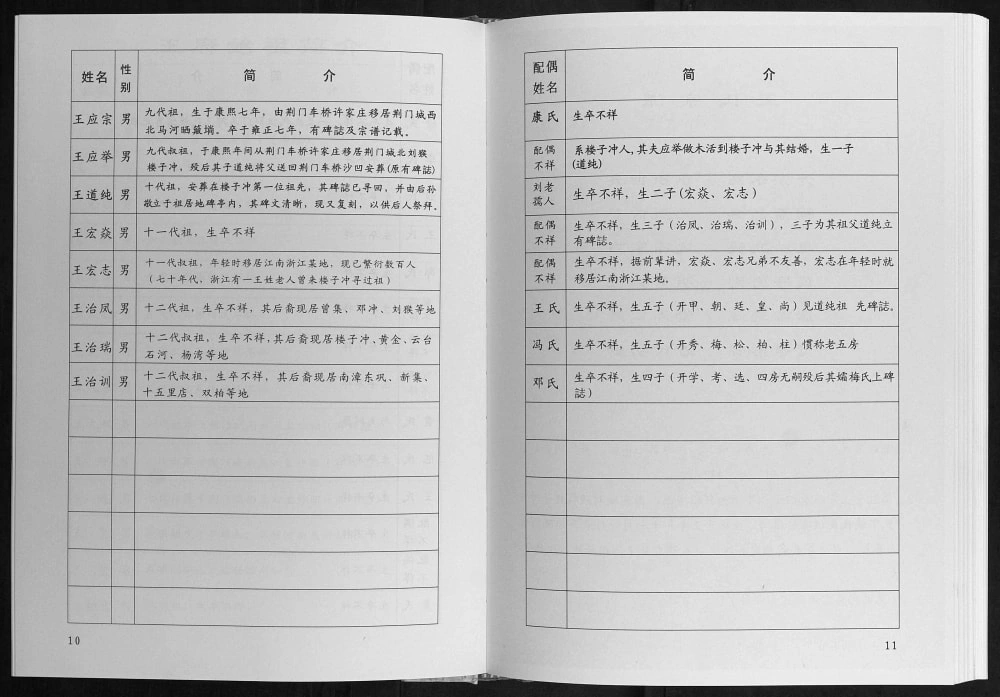 姓名 性别 简 介
王应宗 男 九代祖，生于康熙七年，由荆门车桥许家庄移居荆门城西
北马河晒簸埫。卒于雍正七年，有碑誌及宗谱记载。
王应举 男 九代叔祖，于康熙年间从荆门车桥许家庄移居荆门城北刘猴
楼子冲，殁后其子道纯将父送回荆门车桥沙凹安葬(原有碑誌)
王道纯 男 十代祖，安葬在楼子冲第一位祖先，其碑誌已寻回，并由后孙
敬立于祖居地碑亭内，其碑文清晰，现又复刻，以供后人祭拜。
王宏焱 男 十一代祖，生卒不祥
王宏志 男 十一代叔祖，年轻时移居江南浙江某地，现已繁衍数百人
（七十年代，浙江有一王姓老人曾来楼子冲寻过祖）
王治凤 男 十二代祖，生卒不祥，其后裔现居曾集、邓冲、刘猴等地
王治瑞 男 十二代叔祖，生卒不祥,其后裔现居楼子冲、黄金、云台
石河、杨湾等地
王治训 男 十二代叔祖，生卒不祥，其后裔现居南漳东巩、新集、
十五里店、双柏等地
10
配偶姓名 简 介
康氏 生卒不祥
配偶不祥 系楼子冲人,其夫应举做木活到楼子冲与其结婚，生一子
(道纯)
刘老孺人 生卒不祥，生二子(宏焱、宏志)
配偶不祥 生卒不祥，生三子（治凤、治瑞、治训），三子为其祖父道纯立
有碑誌。
配偶不祥 生卒不祥，据前辈讲，宏焱、宏志兄弟不友善，宏志在年轻时就
移居江南浙江某地。
王氏 生卒不祥，生五子（开甲、朝、廷、皇、尚）见道纯祖 先碑誌。
冯氏 生卒不祥，生五子（开秀、梅、松、柏、柱）惯称老五房
邓氏 生卒不祥，生四子（开学、考、选、四房无嗣殁后其孀梅氏上碑
誌）
11